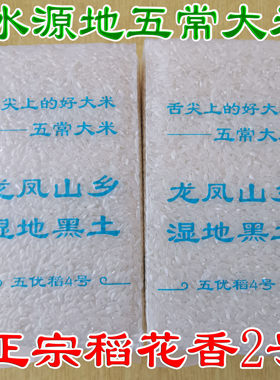 水源地五常大米
舌尖上的好大米
——五常大米
龙凤山乡
湿地黑土
五优稻4号
舌尖上的好大米
——五常大米
龙凤山乡
湿地黑土
五优稻4号
正宗稻花香2